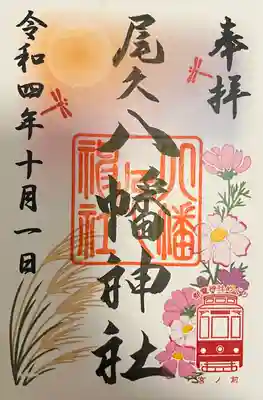 奉拝
尾久八幡神社
令和四年十月一日
八幡
神社
宮ノ前